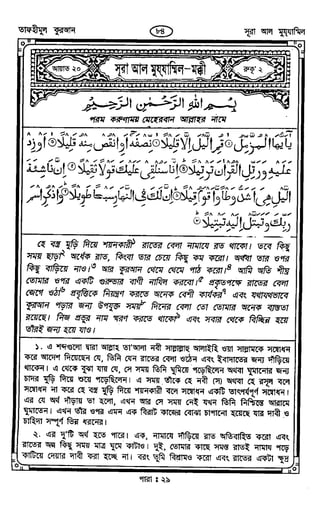 তাফহীমুল কুরআন
৮৪
সূরা আল মুয্‌যাম্মিল
আয়াত ২০
সূরা আল মুয্‌যাম্মিল–মক্কী
রুকূ' ২
بِسْمِ اللهِ الرَّحْمٰنِ الرَّحِيْمِ
পরম করুণাময় মেহেরবান আল্লাহর নামে
يٰٓاَيُّهَا الْمُزَّمِّلُ ۙ قُمِ الَّيْلَ اِلَّا قَلِيْلًا ۙ نِّصْفَهٗٓ اَوِ انْقُصْ مِنْهُ قَلِيْلًا ۙ اَوْ زِدْ
عَلَيْهِ وَرَتِّلِ الْقُرْاٰنَ تَرْتِيْلًا ؕ اِنَّا سَنُلْقِيْ عَلَيْكَ قَوْلًا ثَقِيْلًا ۞ اِنَّ نَاشِئَةَ
الَّيْلِ هِيَ اَشَدُّ وَطْاً وَّاَقْوَمُ قِيْلًا ؕ اِنَّ لَكَ فِي النَّهَارِ سَبْحًا طَوِيْلًا ؕ وَاذْكُرِ اسْمَ
رَبِّكَ وَتَبَتَّلْ اِلَيْهِ تَبْتِيْلًا ؕ
হে বস্ত্র মুড়ি দিয়ে শয়নকারী১ রাতের বেলা নামাযে রত থাকো। তবে কিছু
সময় ছাড়া২ অর্ধেক রাত, কিংবা তার চেয়ে কিছু কম করো। অথবা তার ওপর
কিছু বাড়িয়ে নাও।৩ আর কুরআন থেমে থেমে পাঠ করো।৪ আমি অতি শীঘ্র
তোমার ওপর একটি গুরুভার বাণী নাযিল করবো।৫ প্রকৃতপক্ষে রাতের বেলা
জেগে ওঠা৬ প্রবৃত্তিকে নিয়ন্ত্রণ করতে অনেক বেশী কার্যকর৭ এবং যথাযথভাবে
কুরআন পড়ার জন্য উপযুক্ত সময়৮ দিনের বেলা তো তোমার অনেক ব্যস্ততা
রয়েছে। নিজ প্রভুর নাম স্মরণ করতে থাকো৯ এবং সবার থেকে বিচ্ছিন্ন হয়ে
তাঁরই জন্য হয়ে যাও।
১. এ শব্দগুলো দ্বারা আল্লাহ তা'আলা নবী সাল্লাল্লাহু আলাইহি ওয়া সাল্লামকে সম্বোধন
করে আদেশ দিয়েছেন যে, তিনি যেন রাতের বেলা ওঠেন এবং ইবাদাতের জন্য দাঁড়িয়ে
থাকেন। এ থেকে বুঝা যায় যে, সে সময় তিনি ঘুমিয়ে পড়েছিলেন অথবা ঘুমানোর জন্য
চাদর মুড়ি দিয়ে শুয়ে পড়েছিলেন। এ সময় তাঁকে হে নবী (স) অথবা হে রসূল বলে
সম্বোধন না করে হে বস্ত্র মুড়ি দিয়ে শয়নকারী বলে সম্বোধন একটি তাৎপর্যপূর্ণ সম্বোধন।
এর যে অর্থ দাঁড়ায় তা হলো, এখন আর সে সময় নেই যখন তিনি নিশ্চিন্তে আরামে
ঘুমাতেন। এখন তাঁর ওপর এমন এক বিরাট কাজের বোঝা চাপানো হয়েছে যার দাবী ও
চাহিদা সম্পূর্ণ ভিন্ন ধরনের।
২. এর দু'টি অর্থ হতে পারে। এক, নামাযে দাঁড়িয়ে রাত অতিবাহিত করো এবং
রাতের অল্প কিছু সময় মাত্র ঘুমে কাটাও। দুই, তোমার কাছে সমস্ত রাতই নামায পড়ে
কাটিয়ে দেয়ার দাবী করা হচ্ছে না। বরং তুমি বিশ্রামও করো এবং রাতের একটা ক্ষুদ্র
পারা : ২৯